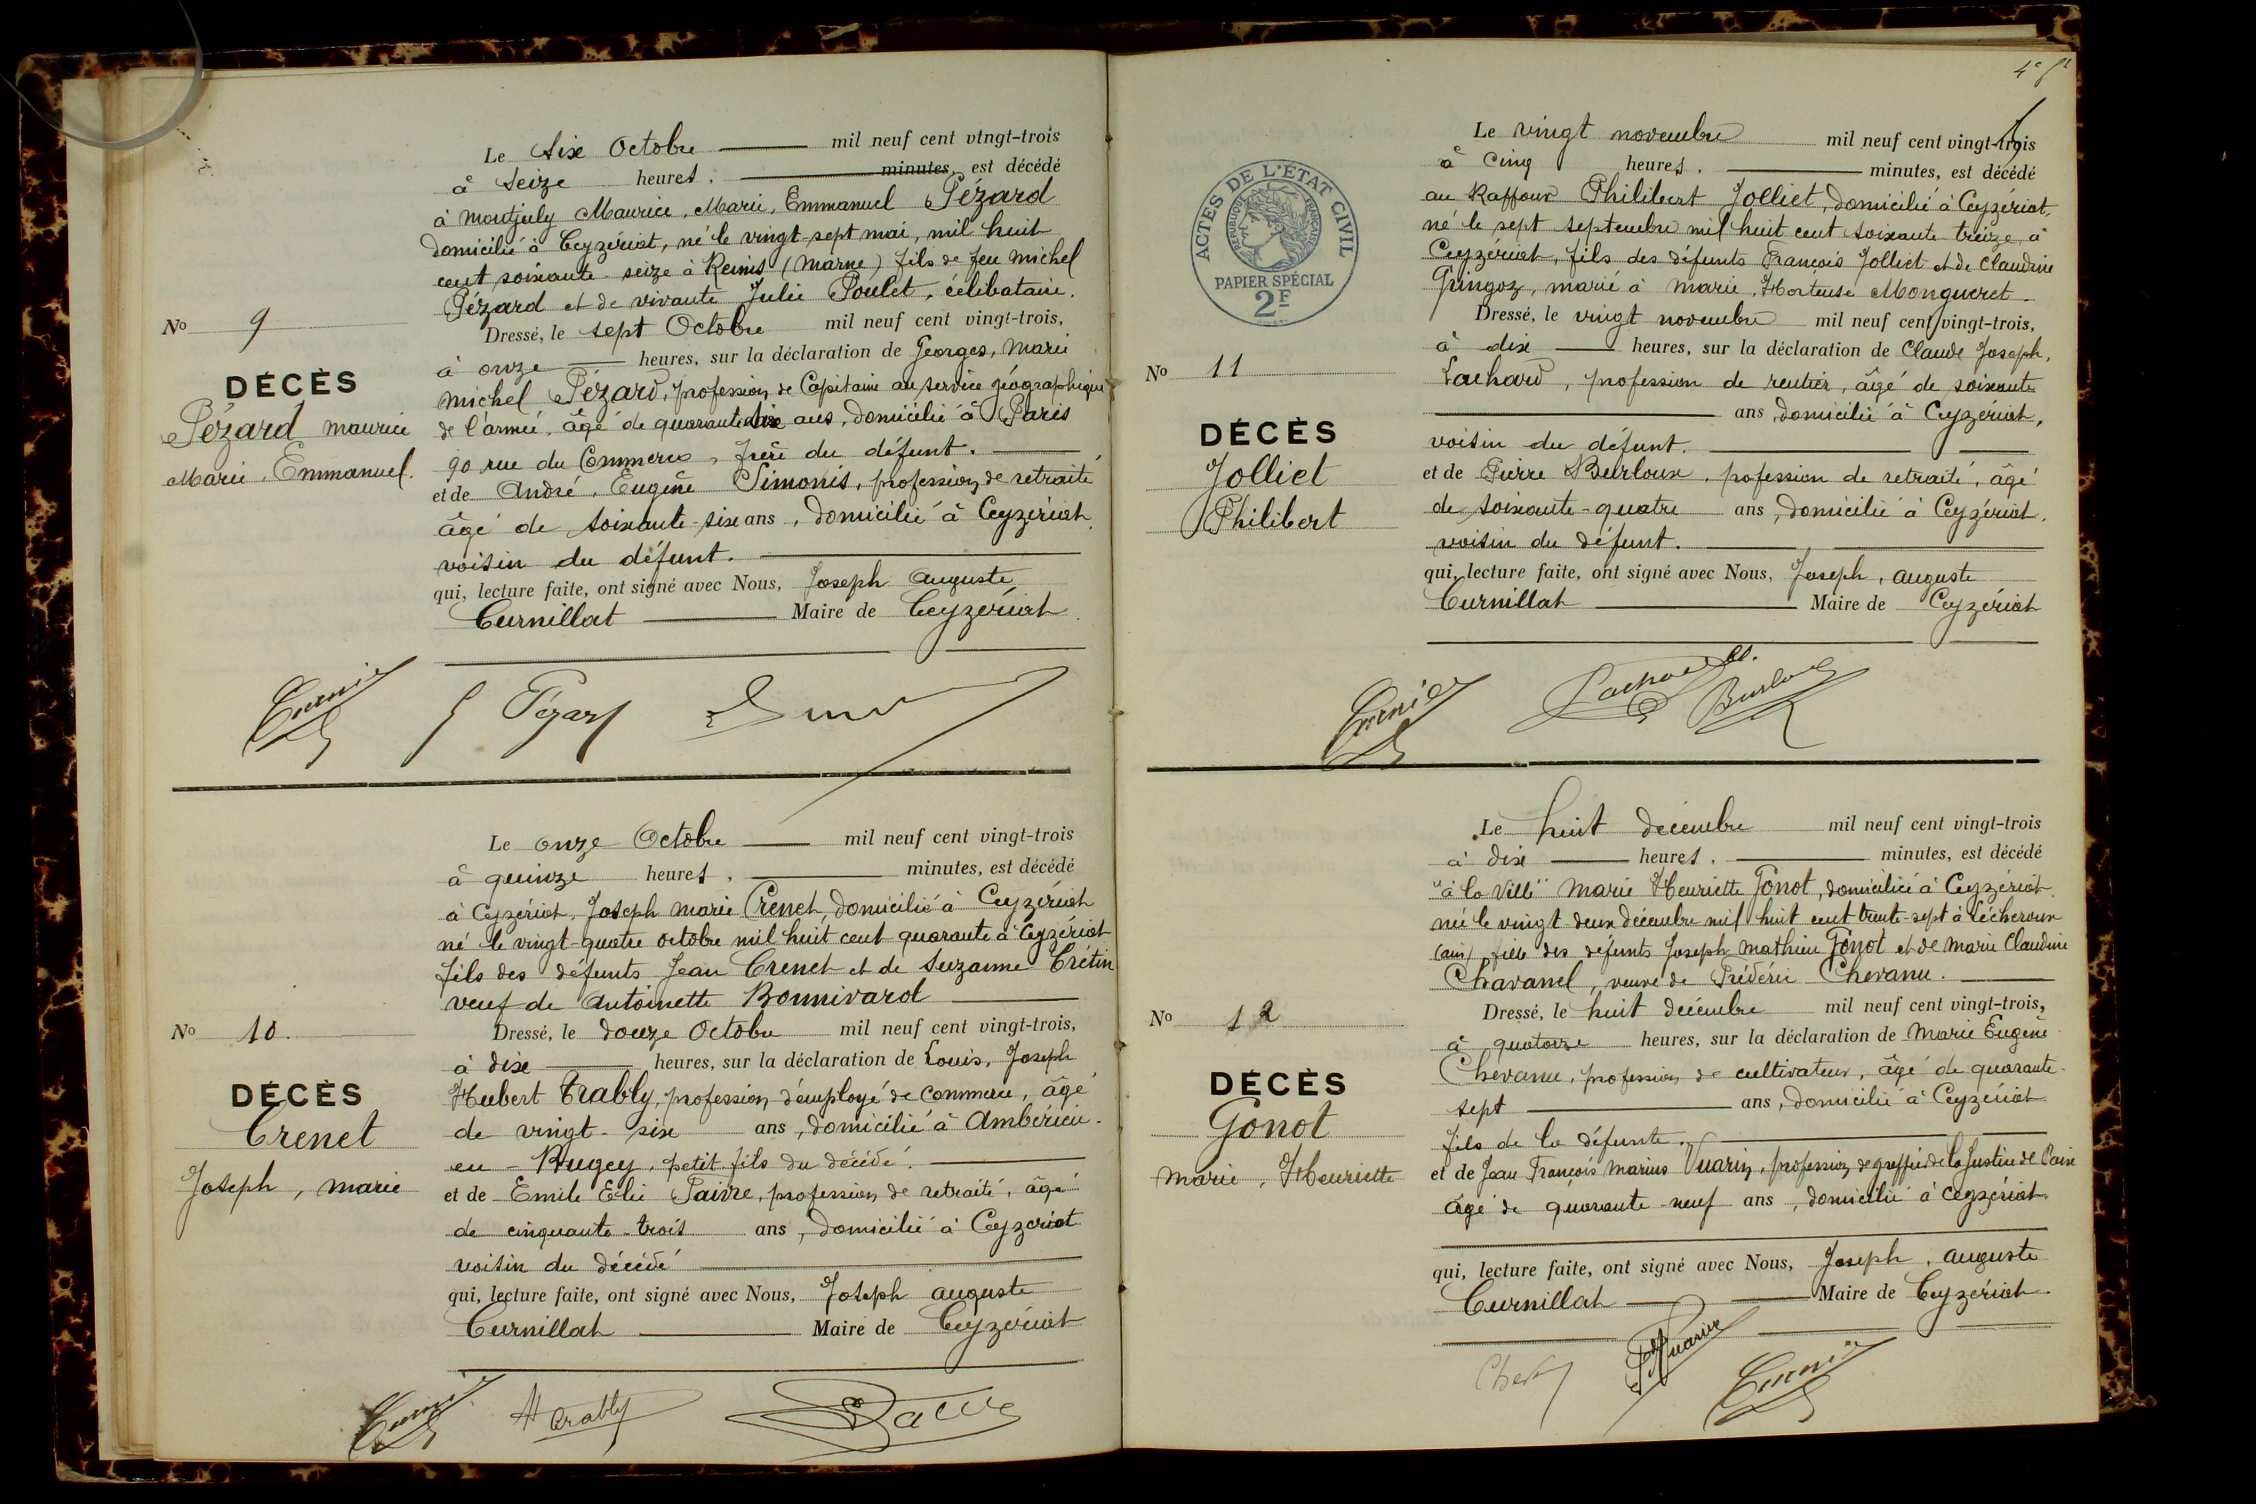 Le six Octobre mil neuf cent vingt-trois
à seize heures. minutes, est décédé
à montjuly Maurice, Marie, Emmanuel Pézard
domicilié à Ceyzériat, né le vingt-sept mai, mil huit
cent soixante-seize à Reims (Marne) fils de feu Michel
Pézard et de vivante Julie Poulet, célibataire.
No 9
Dressé, le sept Octobre mil neuf cent vingt-trois,
à onze heures, sur la déclaration de Georges, Marie
DÉCÈS
Michel Pézard, profession de Capitaine au service géographique
Pézard Maurice
de l'armée, âgé de quarante ans, domicilié à Paris
Marie, Emmanuel.
90 rue du Commerce, frère du défunt.
et de André, Eugène Simonis, profession de retraité
âgé de soixante-six ans, domicilié à Ceyzériat.
voisin du défunt.
qui, lecture faite, ont signé avec Nous, Joseph Auguste
Curnillat Maire de Ceyzériat
G Pézard
Le onze Octobre mil neuf cent vingt-trois
à quinze heures, minutes, est décédé
à Ceyzériat, Joseph Marie Crenet, domicilié à Ceyzériat
né le vingt-quatre octobre mil huit cent quarante à Ceyzériat
fils des défunts Jean Crenet et de Suzanne Crétin
veuf de Antoinette Bonnivard
No 10.
Dressé, le douze Octobre mil neuf cent vingt-trois,
à dix heures, sur la déclaration de Louis, Joseph
DÉCÈS
Hubert Trably, profession d'employé de commerce, âgé
Crenet
de vingt-six ans, domicilié à Ambérieu-
en-Bugey, petit fils du décédé.
Joseph, Marie
et de Emile Elie Paivre, profession de retraité, âgé
de cinquante-trois ans, domicilié à Ceyzériat
voisin du décédé
qui, lecture faite, ont signé avec Nous, Joseph Auguste
Curnillat Maire de Ceyzériat
H Trably
4e
Le vingt novembre mil neuf cent vingt-trois
à cinq heures. minutes, est décédé
au Raffour Philibert Jolliet, domicilié à Ceyzériat,
né le sept septembre mil huit cent soixante treize, à
Ceyzériat, fils des défunts François Jolliet et de Claudine
Gringoz, marié à Marie, Hortense Mongueret.
ACTES DE L'ÉTAT CIVIL
RÉPUBLIQUE FRANÇAISE
PAPIER SPÉCIAL
2F
Dressé, le vingt novembre mil neuf cent vingt-trois,
No 11
à dix heures, sur la déclaration de Claude Joseph,
Lachard, profession de rentier, âgé de soixante
ans, domicilié à Ceyzériat,
DÉCÈS
voisin du défunt.
Jolliet
et de Pierre Burloux, profession de retraité, âgé
Philibert
de soixante-quatre ans, domicilié à Ceyzériat.
voisin du défunt.
qui, lecture faite, ont signé avec Nous, Joseph, Auguste
Curnillat Maire de Ceyzériat
Lachard
Burloux
Le huit décembre mil neuf cent vingt-trois
à dix heures. minutes, est décédé
"à la Ville" Marie Henriette Gonot, domiciliée à Ceyzériat
née le vingt deux décembre mil huit cent trente-sept à Lécheroux
(ain) fille des défunts Joseph Mathieu Gonot et de Marie Claudine
Chavanel, veuve de Frédéric Chevanu.
No 12
Dressé, le huit décembre mil neuf cent vingt-trois,
à quatorze heures, sur la déclaration de Marie Eugène
DÉCÈS
Chevanu, profession de cultivateur, âgé de quarante-
sept ans, domicilié à Ceyzériat
Gonot
fils de la défunte.
Marie, Henriette
et de Jean François Marius Vuarin, profession de greffier de la Justice de Paix
âgé de quarante-neuf ans, domicilié à Ceyzériat.
qui, lecture faite, ont signé avec Nous, Joseph, Auguste
Curnillat Maire de Ceyzériat.
Vuarin